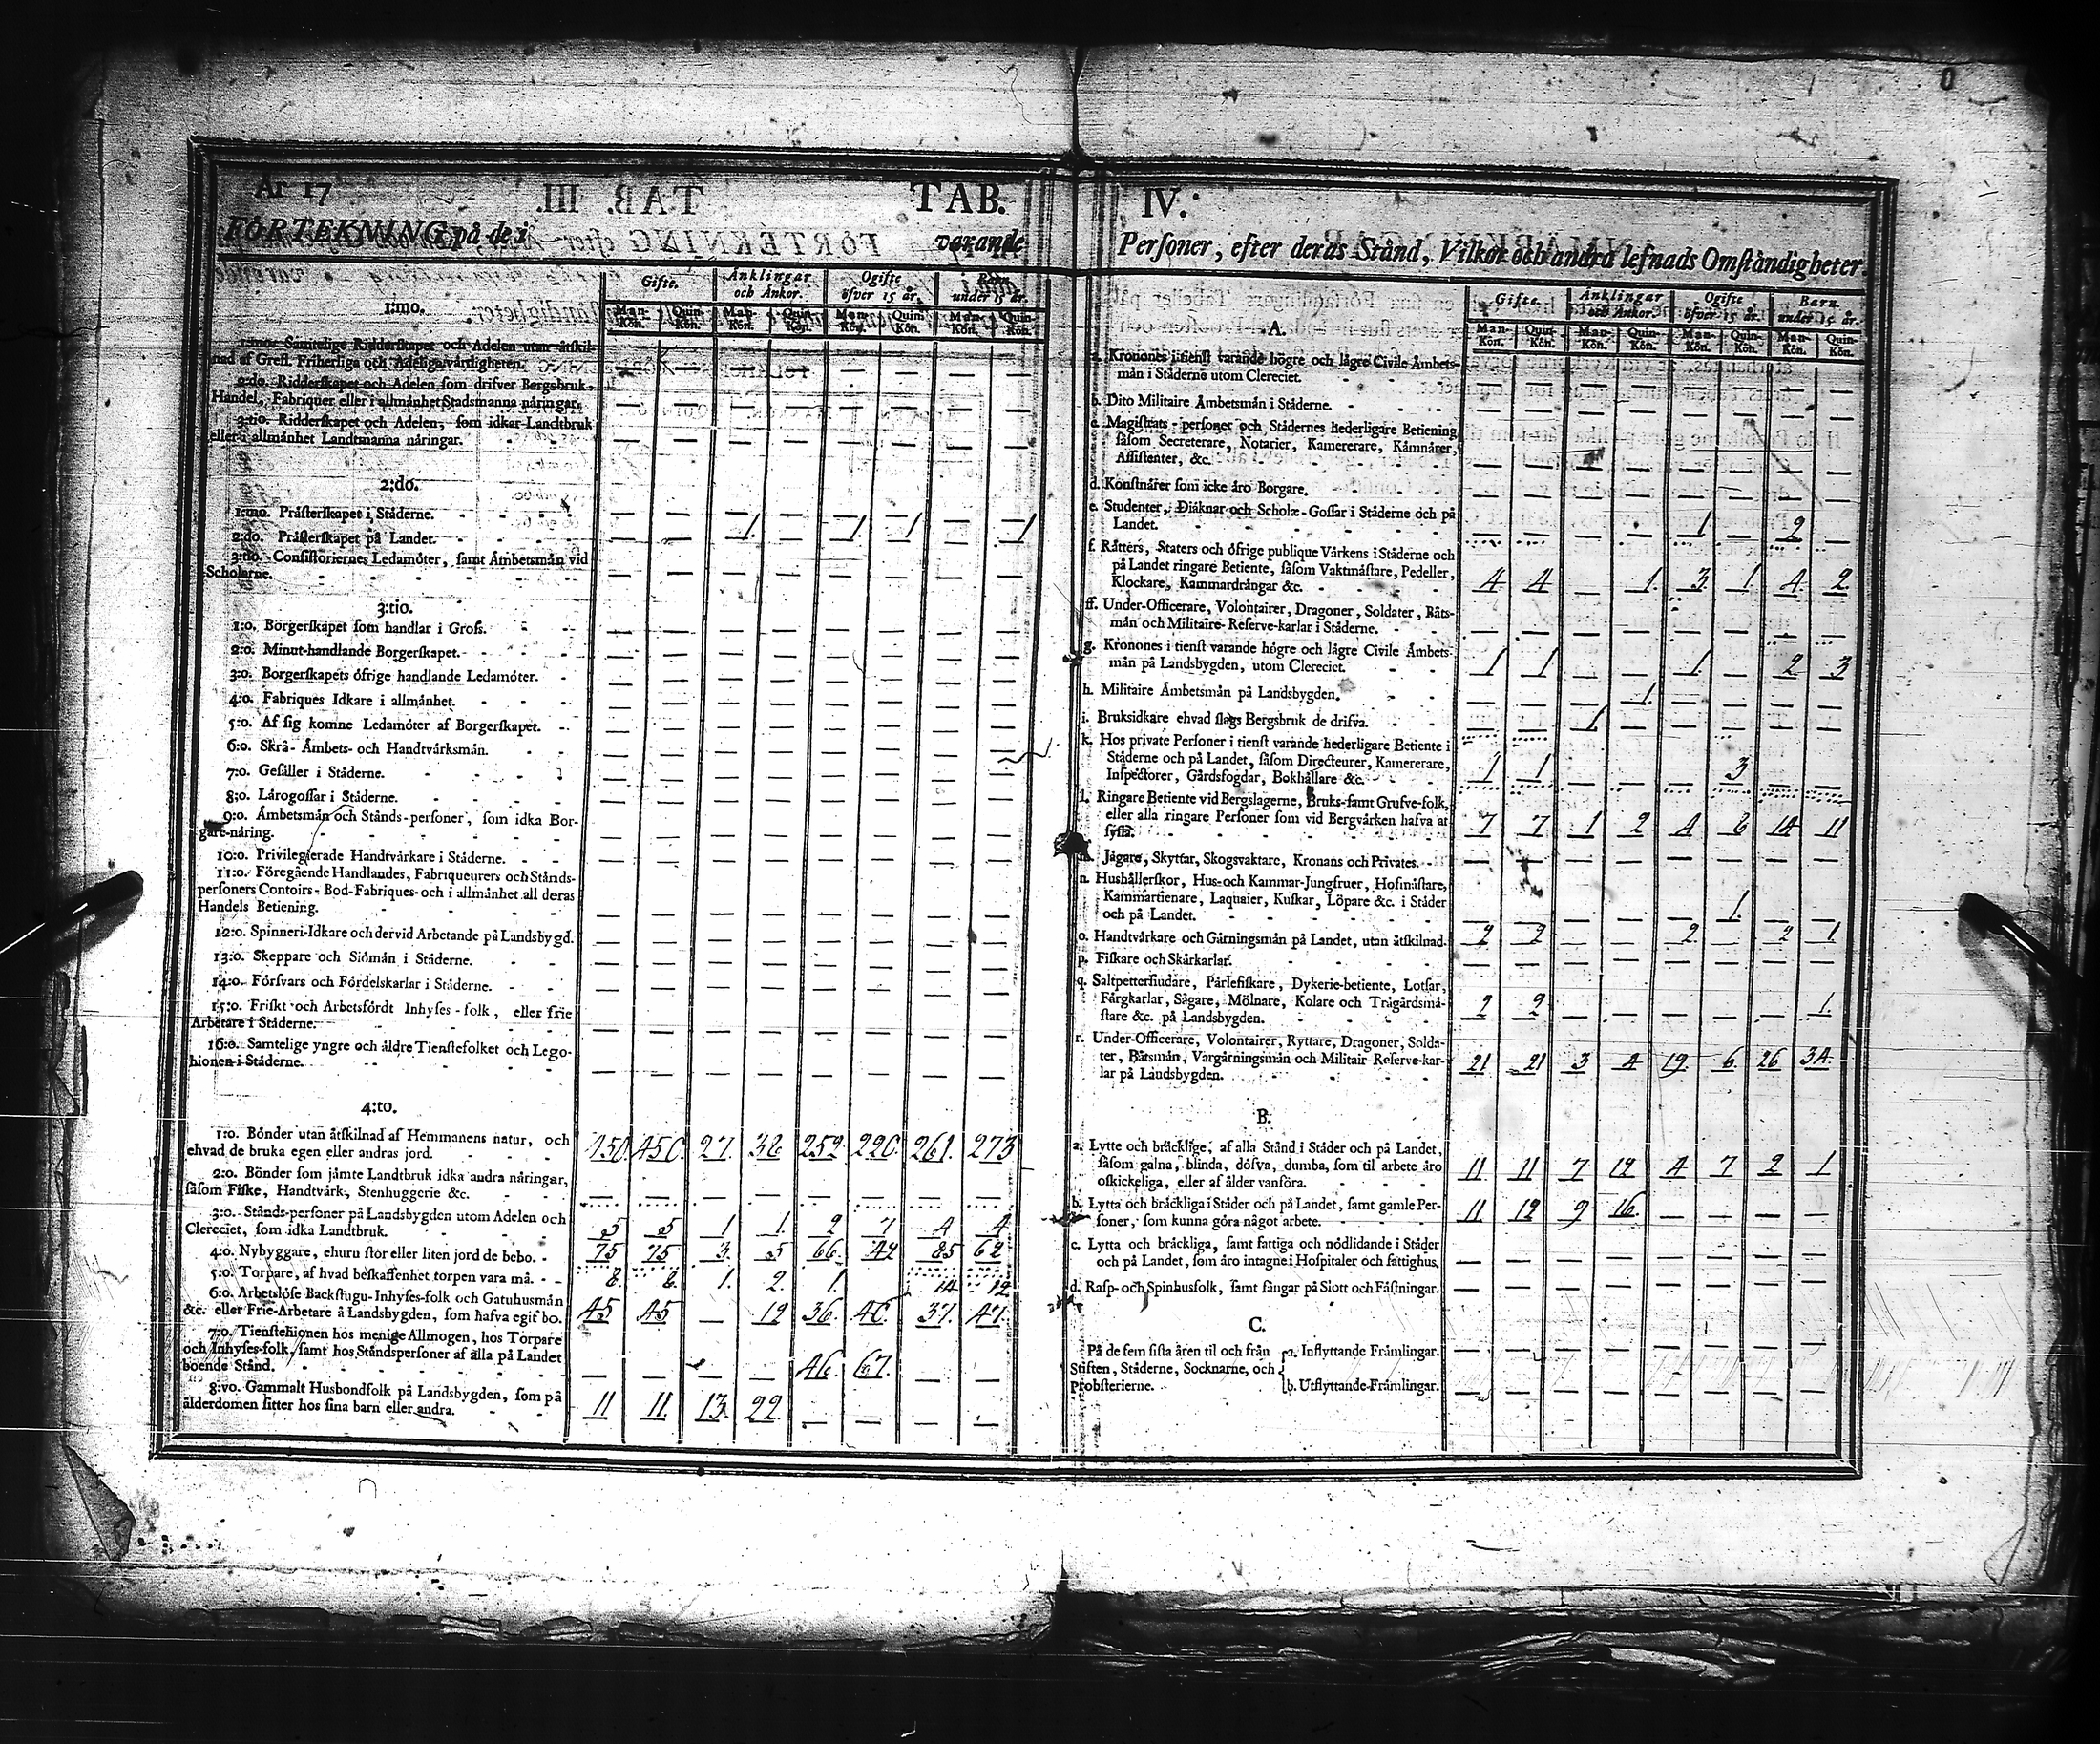 År 17
TAB.
FÖRTEKNING på de i
varande
Gifte.
Änklingar och Änkor.
Ogifte öfver 15 år.
Barn under 15 år.
Man-Kön. Quin-Kön. Man-Kön. Quin-Kön. Man-Kön. Quin-Kön. Man-Kön. Quin-Kön.
1:mo.
1:mo. Samtelige Ridderſkapet och Adelen utan åtſkil-
nad af Grefl. Friherliga och Adeliga värdigheten. — — — — — — — —
2:do. Ridderſkapet och Adelen ſom drifver Bergsbruk,
Handel, Fabriquer eller i allmånhet Stadsmanna nåringar. — — — — — — — —
3:tio. Ridderſkapet och Adelen, ſom idkar Landtbruk
eller i allmånhet Landtmanna nåringar. — — — — — — — —
2:do.
1:mo. Pråſterſkapet i Ståderne. — — — — — — — —
2:do. Pråſterſkapet på Landet. — — 1. — 1. 1 — 1
3:tio. Conſiſtoriernes Ledamöter, ſamt Åmbetsmån vid
Scholarne. — — — — — — — —
3:tio.
1:o. Borgerſkapet ſom handlar i Groſs. — — — — — — — —
2:o. Minut-handlande Borgerſkapet. — — — — — — — —
3:o. Borgerſkapets öfrige handlande Ledamöter. — — — — — — — —
4:o. Fabriques Idkare i allmånhet. — — — — — — — —
5:o. Af ſig komne Ledamöter af Borgerſkapet. — — — — — — — —
6:o. Skrå- Åmbets- och Handtvårksmån. — — — — — — — —
7:o. Geſåller i Ståderne. — — — — — — — —
8:o. Lårogoſſar i Ståderne. — — — — — — — —
9:o. Åmbetsmån och Stånds-perſoner, ſom idka Bor-
gare-nåring. — — — — — — — —
10:o. Privilegierade Handtvårkare i Ståderne. — — — — — — — —
11:o. Föregående Handlandes, Fabriqueurers och Stånds-
perſoners Contoirs- Bod-Fabriques- och i allmånhet all deras
Handels Betiening. — — — — — — — —
12:o. Spinneri-Idkare och dervid Arbetande på Landsbygd. — — — — — — — —
13:o. Skeppare och Siömån i Ståderne. — — — — — — — —
14:o. Förſvars och Fördelskarlar i Ståderne. — — — — — — — —
15:o. Friſkt och Arbetsfördt Inhyſes-folk, eller frie
Arbetare i Ståderne. — — — — — — — —
16:o. Samtelige yngre och åldre Tienſtefolket och Lego-
hionen i Ståderne. — — — — — — — —
4:to.
1:o. Bönder utan åtſkilnad af Hemmanens natur, och
ehvad de bruka egen eller andras jord. 27. 252. 220. 261. 273
2:o. Bönder ſom jåmte Landtbruk idka andra nåringar,
ſåſom Fiſke, Handtvårk, Stenhuggerie &c. — — — — — — — —
3:o. Stånds-perſoner på Landsbygden utom Adelen och
Clereciet, ſom idka Landtbruk. 5 5 1 1. 2 7 4 4
4:o. Nybyggare, ehuru ſtor eller liten jord de bebo. 75 75 3. 5 66. 42 85 62
5:o. Torpare, af hvad beſkaffenhet torpen vara må. 8 8. 1. 2. 1. 14 12
6:o. Arbetslöſe Backſtugu-Inhyſes-folk och Gatuhusmån
&c. eller Frie-Arbetare å Landsbygden, ſom hafva eget bo. 45 45 — 12 36. 40. 37. 47.
7:o. Tienſtehionen hos menige Allmogen, hos Torpare
och Inhyſes-folk, ſamt hos Ståndsperſoner af alla på Landet
boende Stånd. — — — — 46. 67. — —
8:vo. Gammalt Husbondfolk på Landsbygden, ſom på
ålderdomen ſitter hos ſina barn eller andra. 11 11. 13 22 — — — —
IV.
Perſoner, efter deras Stånd, Vilkor och andra lefnads Omſtåndigheter.
Gifte.
Änklingar och Änkor.
Ogifte öfver 15 år.
Barn under 15 år.
Man-Kön. Quin-Kön. Man-Kön. Quin-Kön. Man-Kön. Quin-Kön. Man-Kön. Quin-Kön.
A.
a. Kronones i tienſt varande högre och lågre Civile Åmbets-
mån i Ståderne utom Clereciet. — — — — — — — —
b. Dito Militaire Åmbetsmån i Ståderne. — — — — — — — —
c. Magiſtrats-perſoner och Stådernes hederligare Betiening
ſåſom Secreterare, Notarier, Kamererare, Kåmnårer,
Aſſiſtenter, &c. — — — — — — — —
d. Konſtnårer ſom icke åro Borgare. — — — — — — — —
e. Studenter, Diåknar och Scholæ-Goſſar i Ståderne och på
Landet. — — — — 1 — 2 —
f. Råtters, Staters och öfrige publique Vårkens i Ståderne och
på Landet ringare Betiente, ſåſom Vaktmåſtare, Pedeller,
Klockare, Kammardrångar &c. 4 4 — 1. 3 1 4 2
ff. Under-Officerare, Volontairer, Dragoner, Soldater, Båts-
mån och Militaire-Reſerve-karlar i Ståderne. — — — — — — — —
g. Kronones i tienſt varande högre och lågre Civile Åmbets-
mån på Landsbygden, utom Clereciet. 1 1 — — 1. — 2 3
h. Militaire Åmbetsmån på Landsbygden. — — — 1. — — — —
i. Bruksidkare ehvad ſlags Bergsbruk de drifva. — — 1 — — — — —
k. Hos private Perſoner i tienſt varande hederligare Betiente i
Ståderne och på Landet, ſåſom Directeurer, Kamererare,
Inſpectorer, Gårdsfogdar, Bokhållare &c. 1 1 — — — 3 — —
l. Ringare Betiente vid Bergslagerne, Bruks-ſamt Grufve-folk,
eller alla ringare Perſoner ſom vid Bergvårken hafva at
ſyſla. 7 7 1 2 4 6 14 11
m. Jågare, Skyttar, Skogsvaktare, Kronans och Privates. — — — — — — — —
n. Hushållerſkor, Hus-och Kammar-Jungfruer, Hofmåſtare,
Kammartienare, Laquaier, Kuſkar, Löpare &c. i Ståder
och på Landet. — — — — — 1. — —
o. Handtvårkare och Gårningsmån på Landet, utan åtſkilnad. 2 2 — — 2. — 2 1
p. Fiſkare och Skårkarlar. — — — — — — — —
q. Saltpetterſiudare, Pårlefiſkare, Dykerie-betiente, Lotſar,
Fårgkarlar, Sågare, Mölnare, Kolare och Trågårdsmå-
ſtare &c. på Landsbygden. 2 2 — — — — — 1.
r. Under-Officerare, Volontairer, Ryttare, Dragoner, Solda-
ter, Båtsmån, Vargårningsmån och Militair Reſerve-kar-
lar på Landsbygden. 21 21 3 4 19. 6. 26 34
B.
a. Lytte och bråcklige, af alla Stånd i Ståder och på Landet,
ſåſom galna, blinda, döfva, dumba, ſom til arbete åro
oſkickeliga, eller af ålder vanföra. 11 11 7 12 4 7 2 1
b. Lytta och bråckliga i Ståder och på Landet, ſamt gamle Per-
ſoner, ſom kunna göra något arbete. 11 12 9 16. — — — —
c. Lytta och bråckliga, ſamt fattiga och nödlidande i Ståder
och på Landet, ſom åro intagne i Hoſpitaler och fattighus. — — — — — — — —
d. Raſp- och Spinhusfolk, ſamt fångar på Slott och Fåſtningar. — — — — — — — —
C.
På de fem ſiſta åren til och från
Stiften, Ståderne, Socknarne, och
Probſterierne.
a. Inflyttande Fråmlingar. — — — — — — — —
b. Utflyttande Fråmlingar. — — — — — — — —